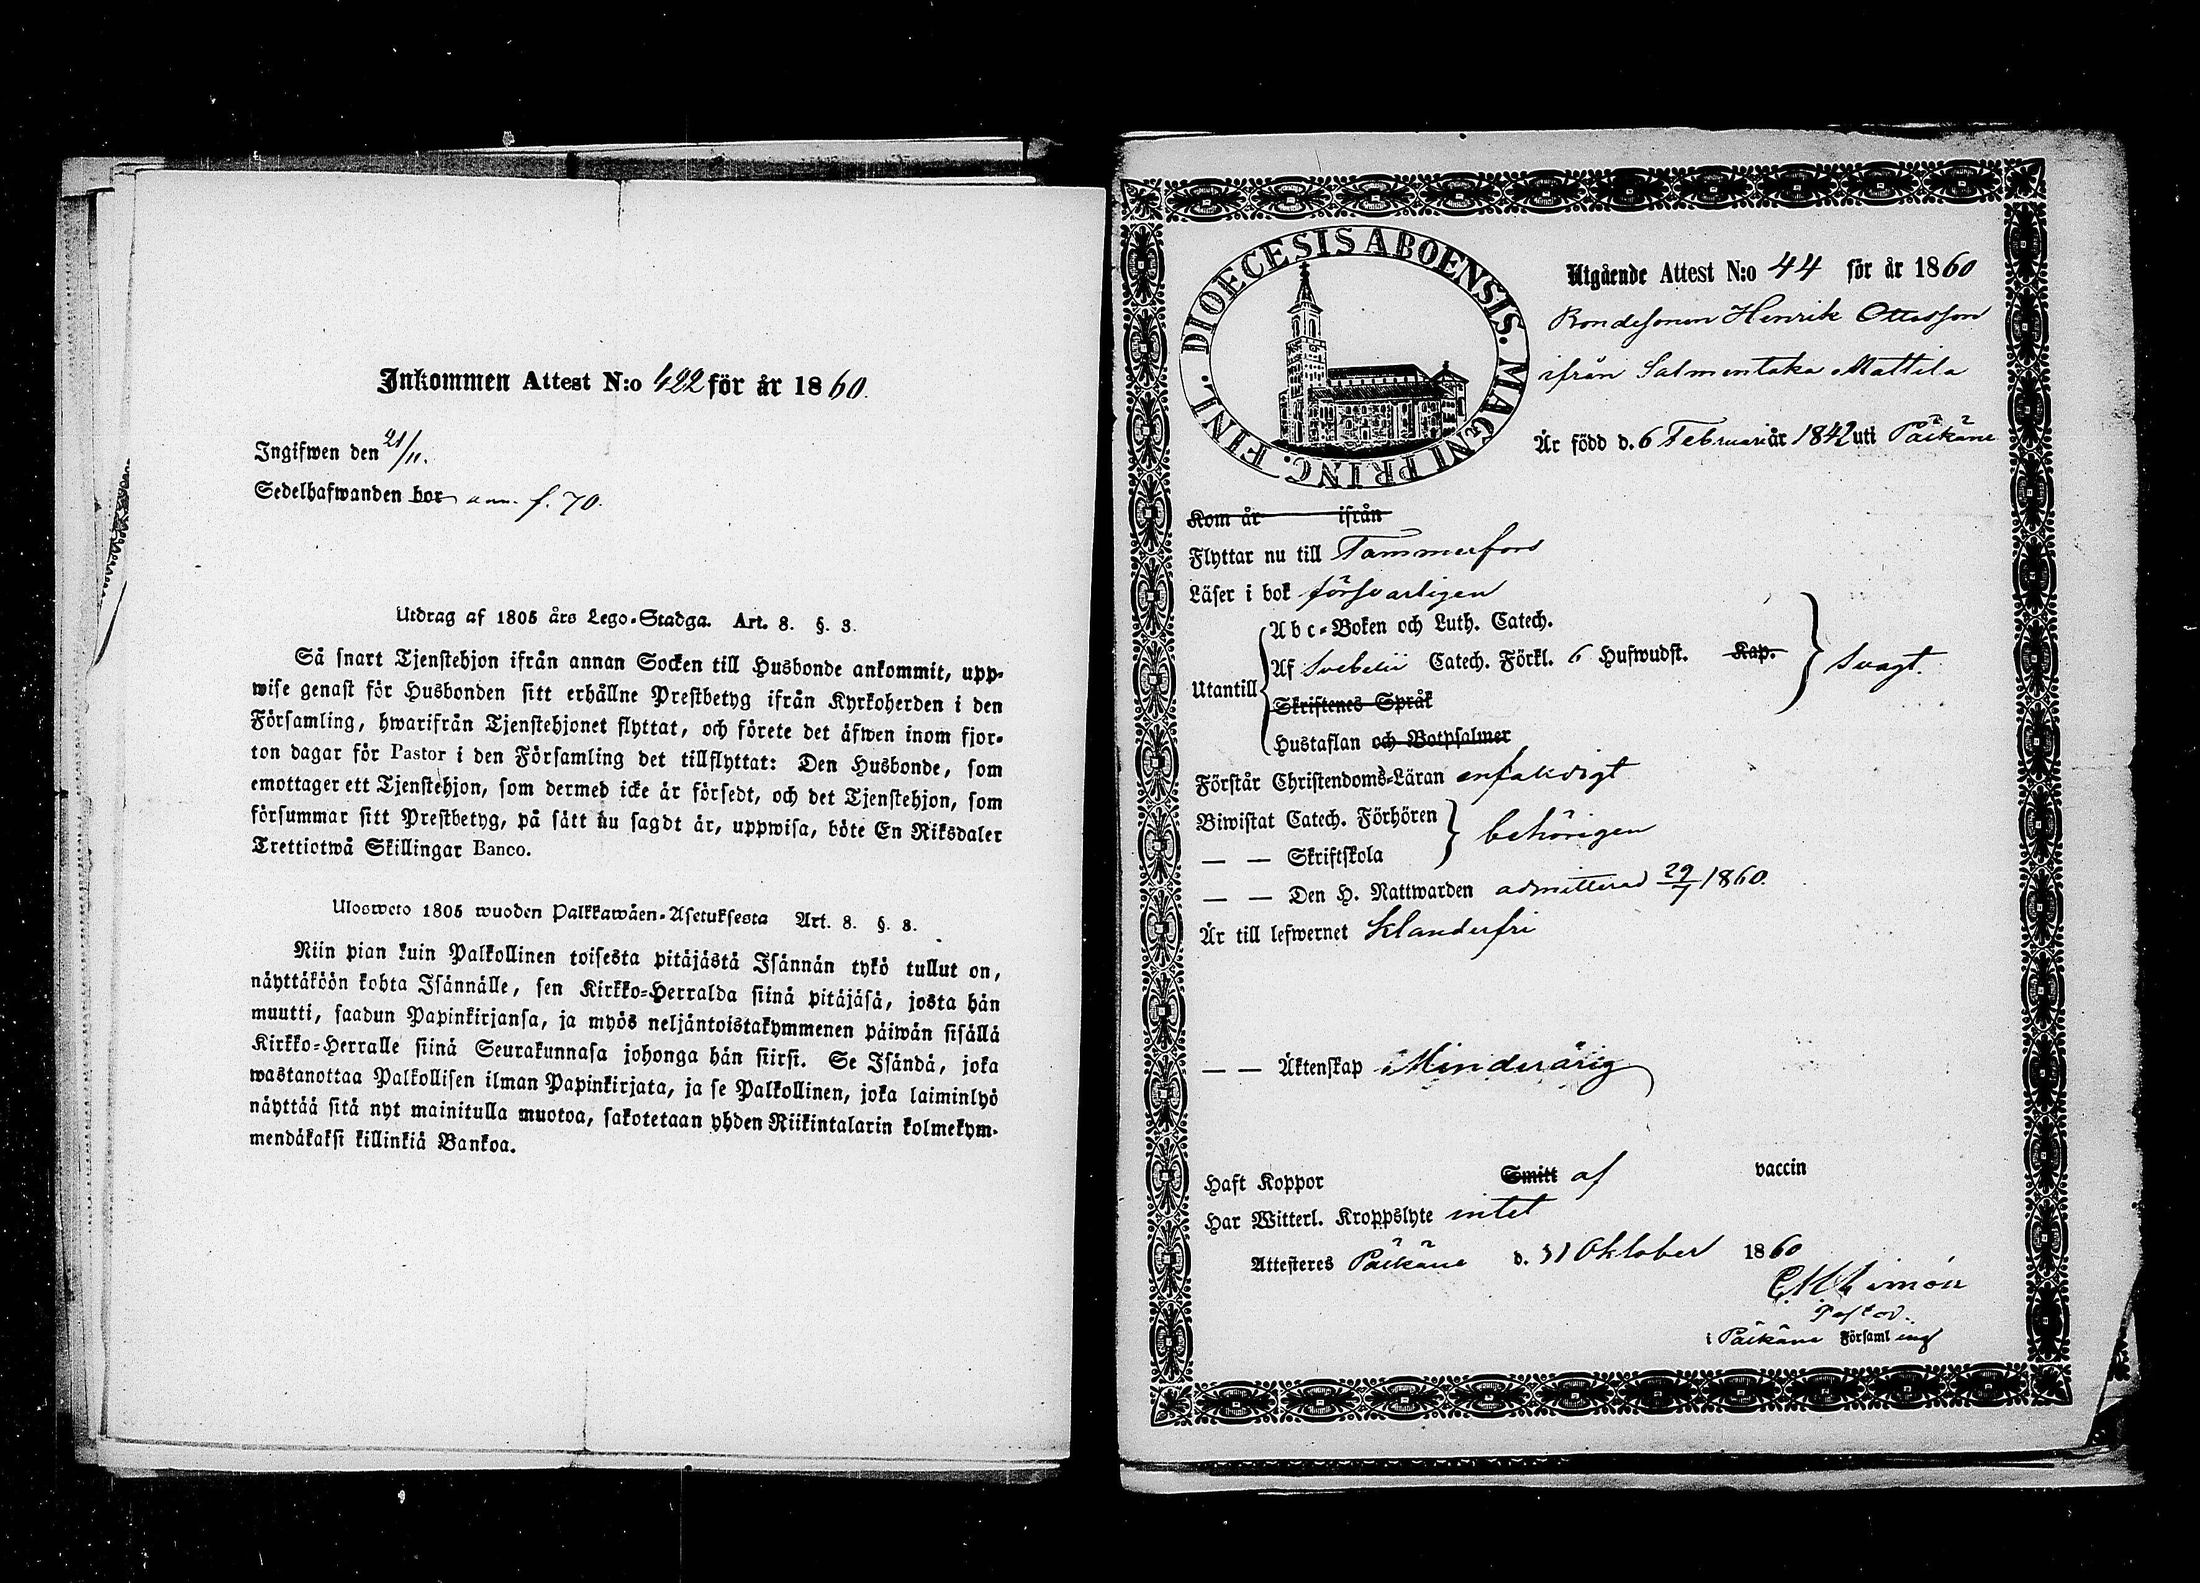 Inkommen Attest N:o 422 för år 1860.
Ingifwen den 21/11.
Sedelhafwanden bor ann. f. 70.
Utdrag af 1805 års Lego-Stadga. Art. 8. §. 3.
Så snart Tjenstehjon ifrån annan Socken till Husbonde ankommit, upp-
wise genast för Husbonden sitt erhållne Prestbetyg ifrån Kyrkoherden i den
Församling, hwarifrån Tjenstehjonet flyttat, och förete det äfwen inom fjor-
ton dagar för Pastor i den Församling det tillflyttat: Den Husbonde, som
emottager ett Tjenstehjon, som dermed icke är försedt, och det Tjenstehjon, som
försummar sitt Prestbetyg, på sätt nu sagdt är, uppwisa, böte En Riksdaler
Trettiotwå Skillingar Banco.
Ulosweto 1805 wuoden Palkkawäen-Asetuksesta Art. 8. §. 3.
Niin pian kuin Palkollinen toisesta pitäjästä Isännän tykö tullut on,
näyttäköön kohta Isännälle, sen Kirkko-Herralda siinä pitäjäsä, josta hän
muutti, saadun Papinkirjansa, ja myös neljäntoistakymmenen päiwän sisällä
Kirkko-Herralle siinä Seurakunnasa johonga hän siirsi. Se Isändä, joka
wastanottaa Palkollisen ilman Papinkirjata, ja se Palkollinen, joka laiminlyö
näyttää sitä nyt mainitulla muotoa, sakotetaan yhden Riikintalarin kolmekym-
mendäkaksi killinkiä Bankoa.
DIOECESIS ABOENSIS. MAGNI PRINC. FINL.
Utgående Attest N:o 44 för år 1860
Bondesonen Henrik Ottosson
ifrån Salmentaka Mattila
Är född d. 6 Februari år 1842 uti Pälkäne
Kom år ifrån
Flyttar nu till Tammerfors
Läser i bok försvarligen
Abc-Boken och Luth. Catech.
Utantill Af Svebelii Catech. Förkl. 6 Hufwudst. Kap. svagt.
Skriftenes Språk
Hustaflan och Botpsalmer
Förstår Christendoms-Läran enfaldigt
Biwistat Catech. Förhören
— — Skriftskola behörigen
— — Den H. Nattwarden admitterad 29/7 1860.
Är till lefwernet klanderfri
— — Äktenskap Minderårig
Haft Koppor Smitt af vaccin
Har Witterl. Kroppslyte intet
Attesteres Pälkäne d. 31 Oktober 1860
Pastor.
i Pälkäne Församling